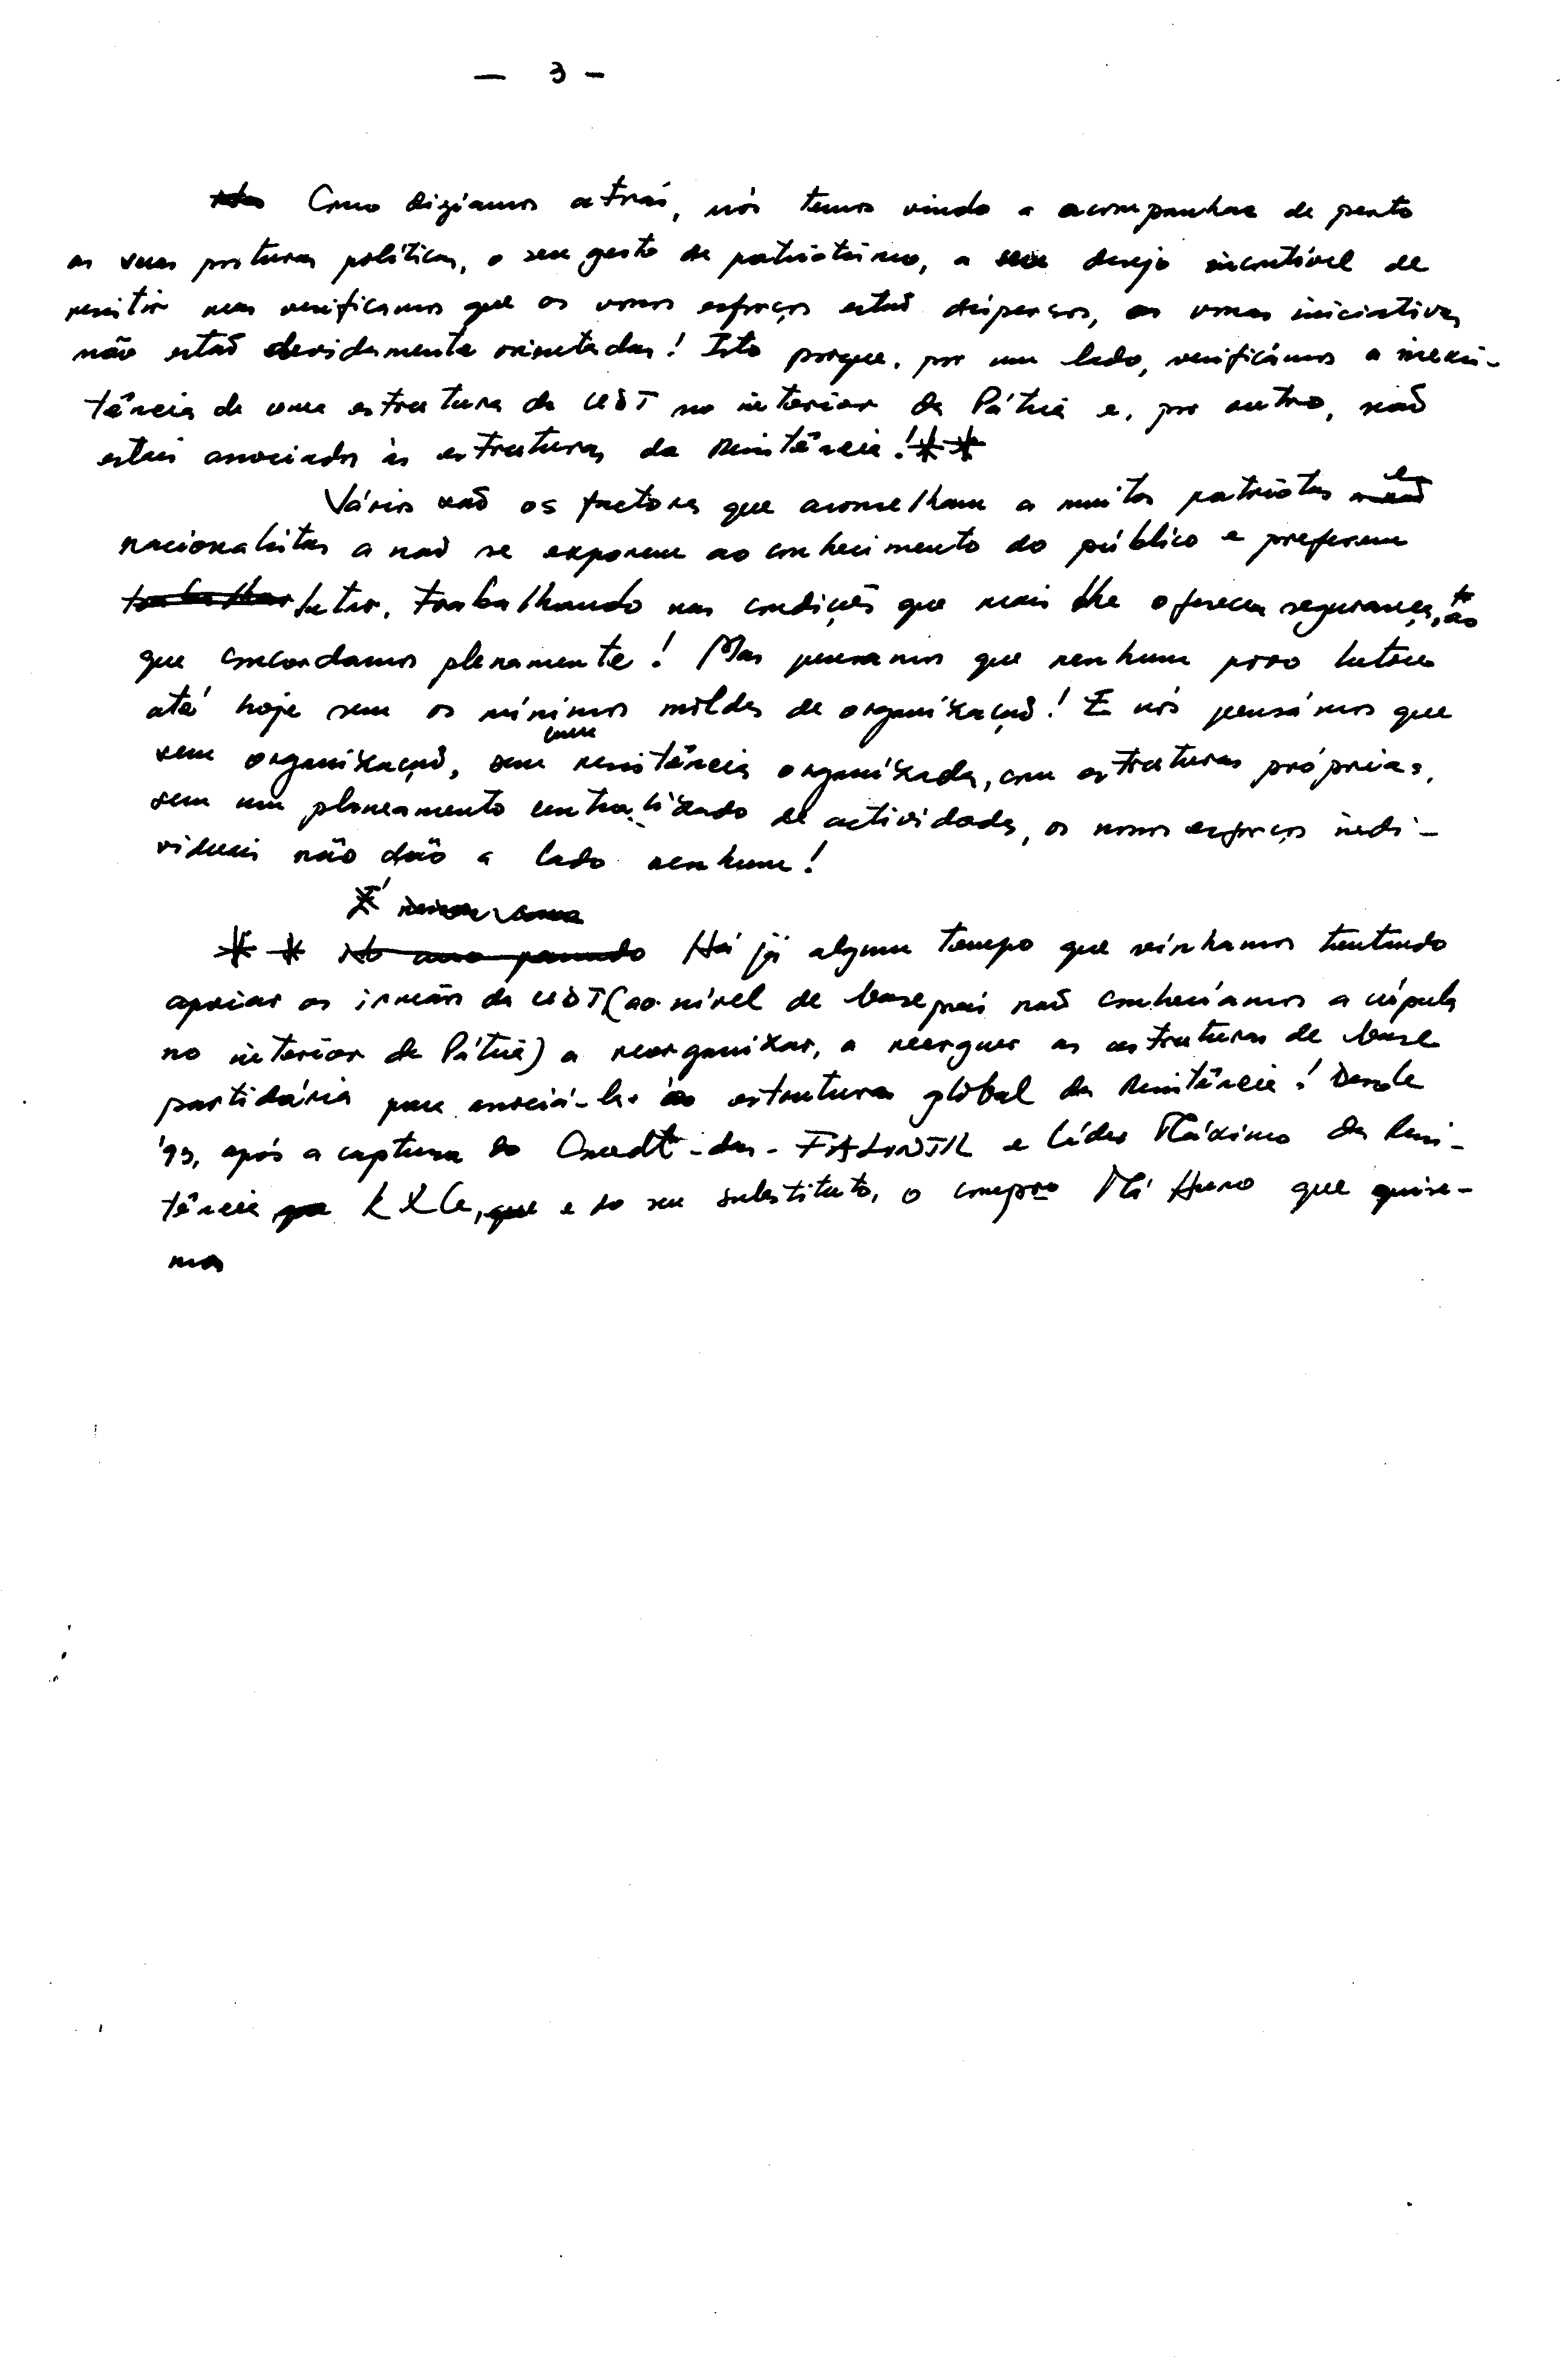 — 3 -
Como dizíamos atrás, nós temos vindo a acompanhar de perto
as vossas posturas políticas, o seu gesto de patriotismo, o seu desejo incontível de
resistir mas verificamos que os vossos esforços estão dispersos, as vossas iniciativas
não estão devidamente orientadas! Isto porque, por um lado, verificámos a inexis-
tência de uma estrutura da UDT no interior da Pátria e, por outro, não
estais associados às estruturas da Resistência! * *
Vários são os factores que aconselham a muitos patriotas e
nacionalistas a não se exporem ao conhecimento do público e preferem
trabalhar lutar, trabalhando nas condições que mais lhe oferecem segurança, ao
que concordamos plenamente! Mas pensamos que nenhum povo lutou
até hoje sem os mínimos moldes de organização! E nós pensámos que
sem organização, sem uma resistência organizada, com estruturas próprias,
sem um planeamento centralizado de actividades, os nossos esforços indi-
viduais não dão a lado nenhum!
É
* * No ano passado Há já algum tempo que vínhamos tentando
apoiar os irmãos da UDT (ao nível de base pois não conhecíamos a cúpula
no interior da Pátria) a reorganizar, a reerguer as estruturas de base
partidária para associá-las à estrutura global da Resistência! Desde
'93, após a captura do Cmdt-das-FALINTIL e Líder Máximo da Resis-
tência K X G, e do seu substituto, o compro Má Huno que quise-
mos